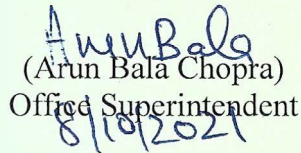 Arun Bala
(Arun Bala Chopra)
Office Superintendent
8/10/2021